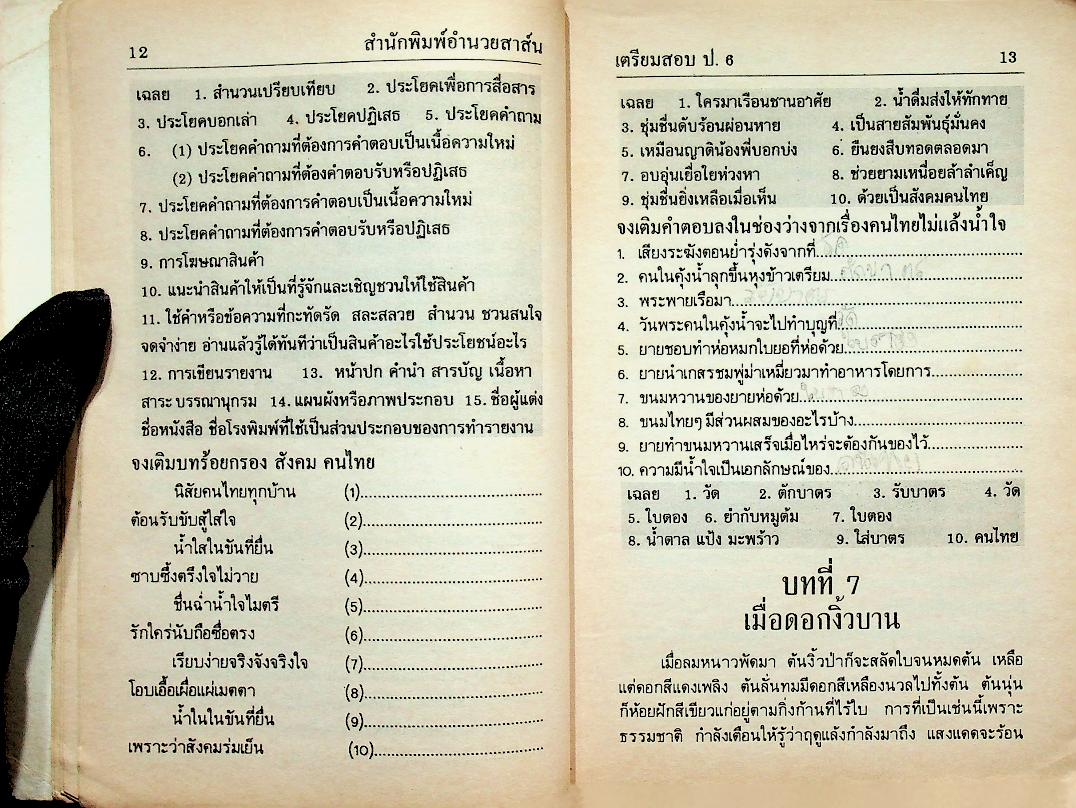 12
สำนักพิมพ์อำนวยสาส์น
เฉลย 1. สำนวนเปรียบเทียบ 2. ประโยคเพื่อการสื่อสาร
3. ประโยคบอกเล่า 4. ประโยคปฏิเสธ 5. ประโยคคำถาม
6. (1) ประโยคคำถามที่ต้องการคำตอบเป็นเนื้อความใหม่
(2) ประโยคคำถามที่ต้องคำตอบรับหรือปฏิเสธ
7. ประโยคคำถามที่ต้องการคำตอบเป็นเนื้อความใหม่
8. ประโยคคำถามที่ต้องการคำตอบรับหรือปฏิเสธ
9. การโฆษณาสินค้า
10. แนะนำสินค้าให้เป็นที่รู้จักและเชิญชวนให้ใช้สินค้า
11. ใช้คำหรือข้อความที่กะทัดรัด สละสลวย สำนวน ชวนสนใจ
จดจำง่าย อ่านแล้วรู้ได้ทันทีว่าเป็นสินค้าอะไรใช้ประโยชน์อะไร
12. การเขียนรายงาน 13. หน้าปก คำนำ สารบัญ เนื้อหา
สาระ บรรณานุกรม 14. แผนผังหรือภาพประกอบ 15. ชื่อผู้แต่ง
ชื่อหนังสือ ชื่อโรงพิมพ์ที่ใช้เป็นส่วนประกอบของการทำรายงาน
จงเติมบทร้อยกรอง สังคม คนไทย
นิสัยคนไทยทุกบ้าน (1)........................................
ต้อนรับขับสู้ใส่ใจ (2)........................................
น้ำใสในขันที่ยื่น (3)........................................
ซาบซึ้งตรึงใจไม่วาย (4)........................................
ชื่นฉ่ำน้ำใจไมตรี (5)........................................
รักใคร่นับถือซื่อตรง (6)........................................
เรียบง่ายจริงจังจริงใจ (7)........................................
โอบเอื้อเผื่อแผ่เมตตา (8)........................................
น้ำในในขันที่ยื่น (9)........................................
เพราะว่าสังคมร่มเย็น (10)........................................
เตรียมสอบ ป. 6
13
เฉลย 1. ใครมาเรือนชานอาศัย 2. น้ำดื่มส่งให้ทักทาย
3. ชุ่มชื่นดับร้อนผ่อนหาย 4. เป็นสายสัมพันธุ์มั่นคง
5. เหมือนญาติน้องพี่บอกบ่ง 6. ยืนยงสืบทอดตลอดมา
7. อบอุ่นเยื่อใยห่วงหา 8. ช่วยยามเหนื่อยล้าลำเค็ญ
9. ชุ่มชื่นยิ่งเหลือเมื่อเห็น 10. ด้วยเป็นสังคมคนไทย
จงเติมคำตอบลงในช่องว่างจากเรื่องคนไทยไม่แล้งน้ำใจ
1. เสียงระฆังตอนย่ำรุ่งดังจากที่........................................
2. คนในคุ้งน้ำลุกขึ้นหุงข้าวเตรียม........................................
3. พระพายเรือมา........................................
4. วันพระคนในคุ้งน้ำจะไปทำบุญที่........................................
5. ยายชอบทำห่อหมกใบยอที่ห่อด้วย........................................
6. ยายนำเกสรชมพู่ม่าเหมี่ยวมาทำอาหารโดยการ....................
7. ขนมหวานของยายห่อด้วย........................................
8. ขนมไทยๆ มีส่วนผสมของอะไรบ้าง........................................
9. ยายทำขนมหวานเสร็จเมื่อไหร่จะต้องกันของไว้....................
10. ความมีน้ำใจเป็นเอกลักษณ์ของ........................................
เฉลย 1. วัด 2. ตักบาตร 3. รับบาตร 4. วัด
5. ใบตอง 6. ยำกับหมูต้ม 7. ใบตอง
8. น้ำตาล แป้ง มะพร้าว 9. ใส่บาตร 10. คนไทย
บทที่ 7
เมื่อดอกงิ้วบาน
เมื่อลมหนาวพัดมา ต้นงิ้วป่าก็จะสลัดใบจนหมดต้น เหลือ
แต่ดอกสีแดงเพลิง ต้นลั่นทมมีดอกสีเหลืองนวลไปทั้งต้น ต้นนุ่น
ก็ห้อยฝักสีเขียวแก่อยู่ตามกิ่งก้านที่ไร้ใบ การที่เป็นเช่นนี้เพราะ
ธรรมชาติ กำลังเตือนให้รู้ว่าฤดูแล้งกำลังมาถึง แสงแดดจะร้อน